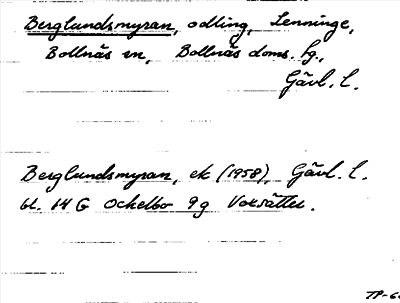 Berglundsmyran, odling, Lenninge,
Bollnäs sn, Bollnäs doms. fg.,
Gävl. l.
Berglundsmyran, ek (1958), Gävl. l.
bl. 14 G Ockelbo 9g Voxsätter.
TP-6